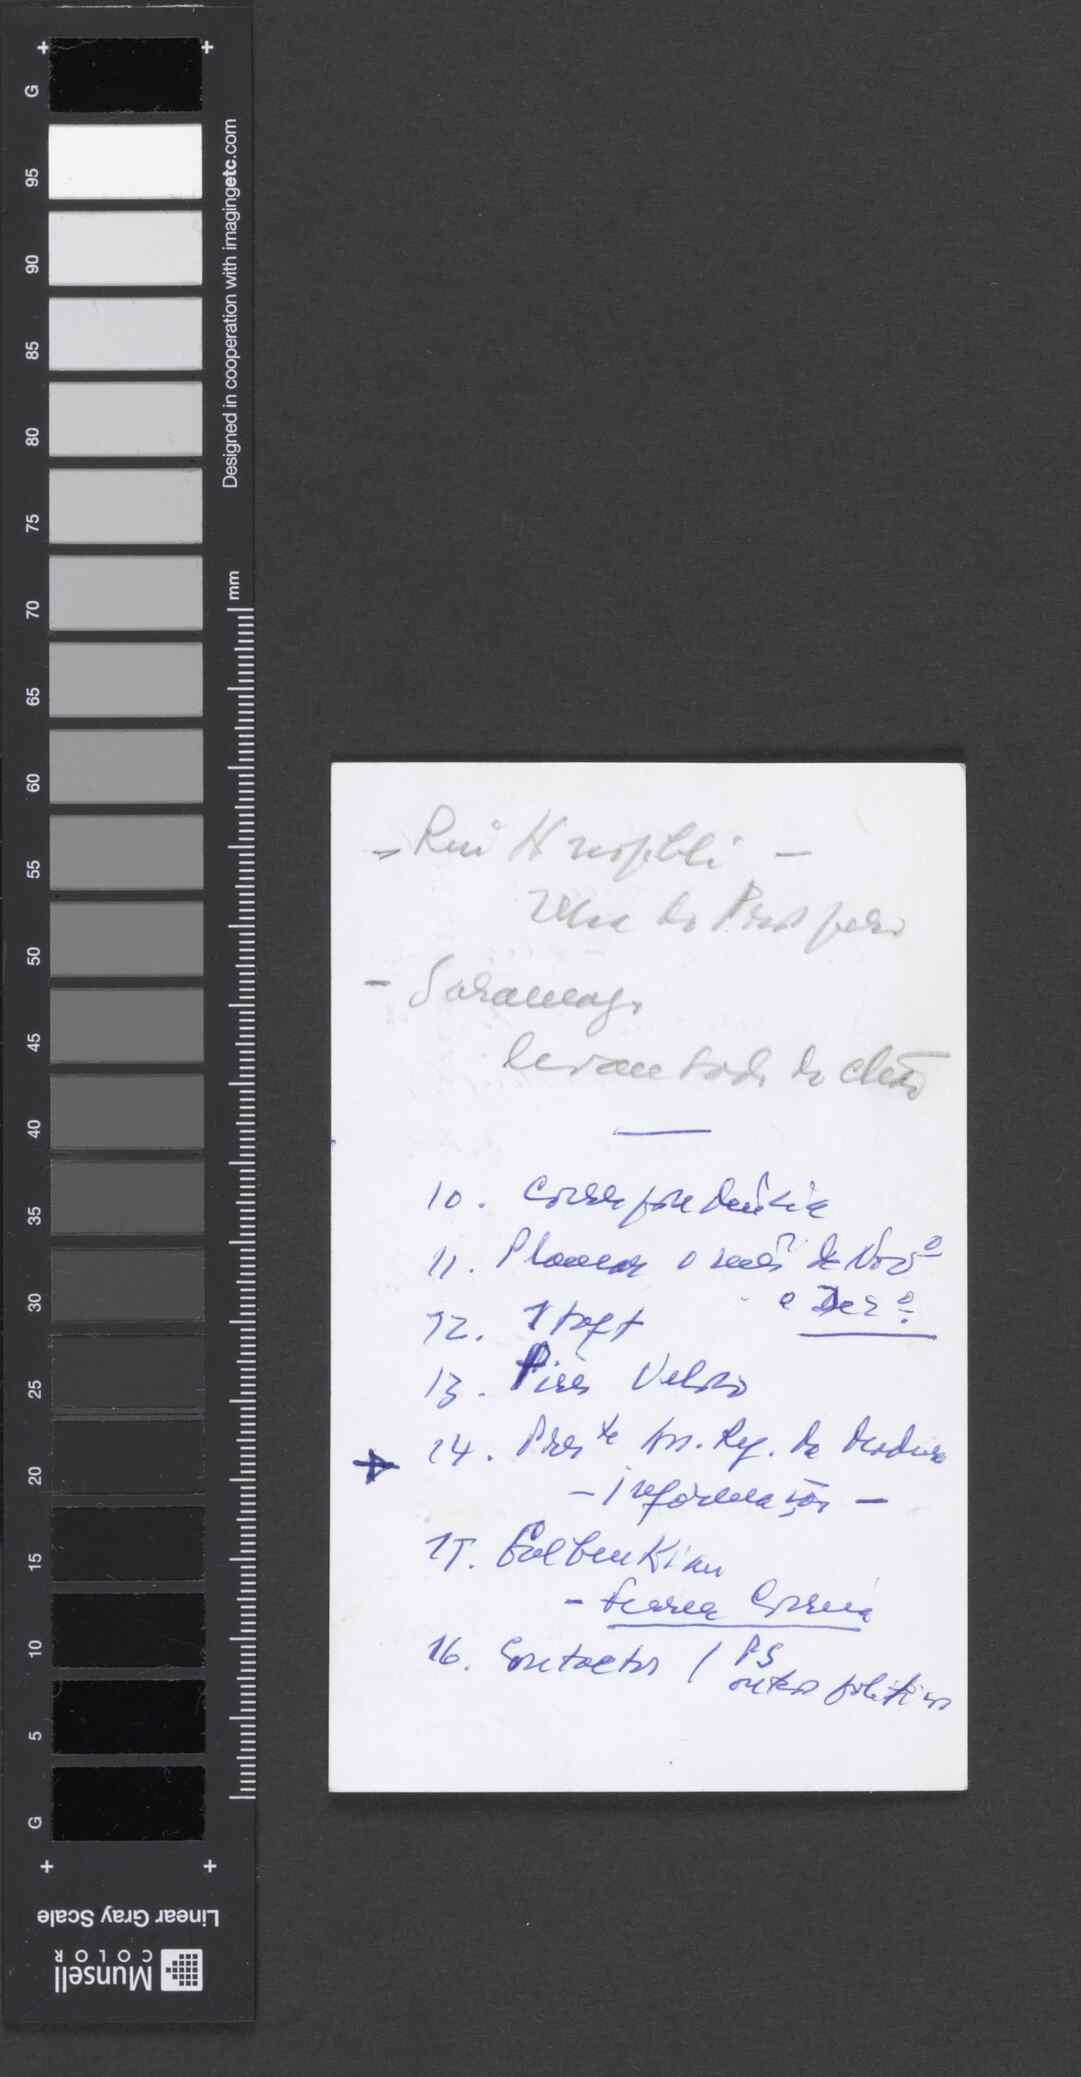 G
95
90
85
80
75
70
65
60
55
50
45
40
35
30
25
20
15
10
5
G
Designed in cooperation with imagingetc.com
mm
Linear Gray Scale
Munsell
COLOR
- Rui Knopfli -
de Prospero
- Saramago
levantado do chão
10. Correspondência
11. Planear o mês de Novº
e Dezº
12.
13. Pires Veloso
14. Preste Ass. Reg. da Madeira
- informação -
15. Gulbenkian
- Correia
16. Contactos / PS
outros políticos